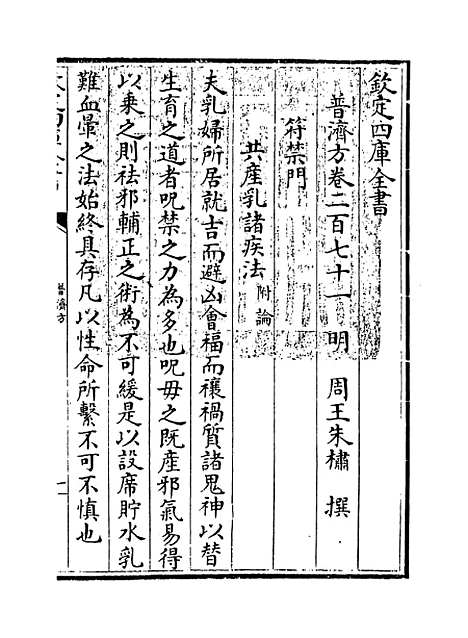 欽定四庫全書
普濟方卷二百七十一 明 周王朱橚 撰
符禁門
共產乳諸疾法附論
夫乳婦所居就吉而避凶會福而禳禍質諸鬼神以替
生育之道者呪禁之力為多也呪毋之既產邪氣易得
以乘之則祛邪輔正之術為不可緩是以設席貯水乳
難血暈之法始終具存凡以性命所繫不可不慎也
普濟方
一